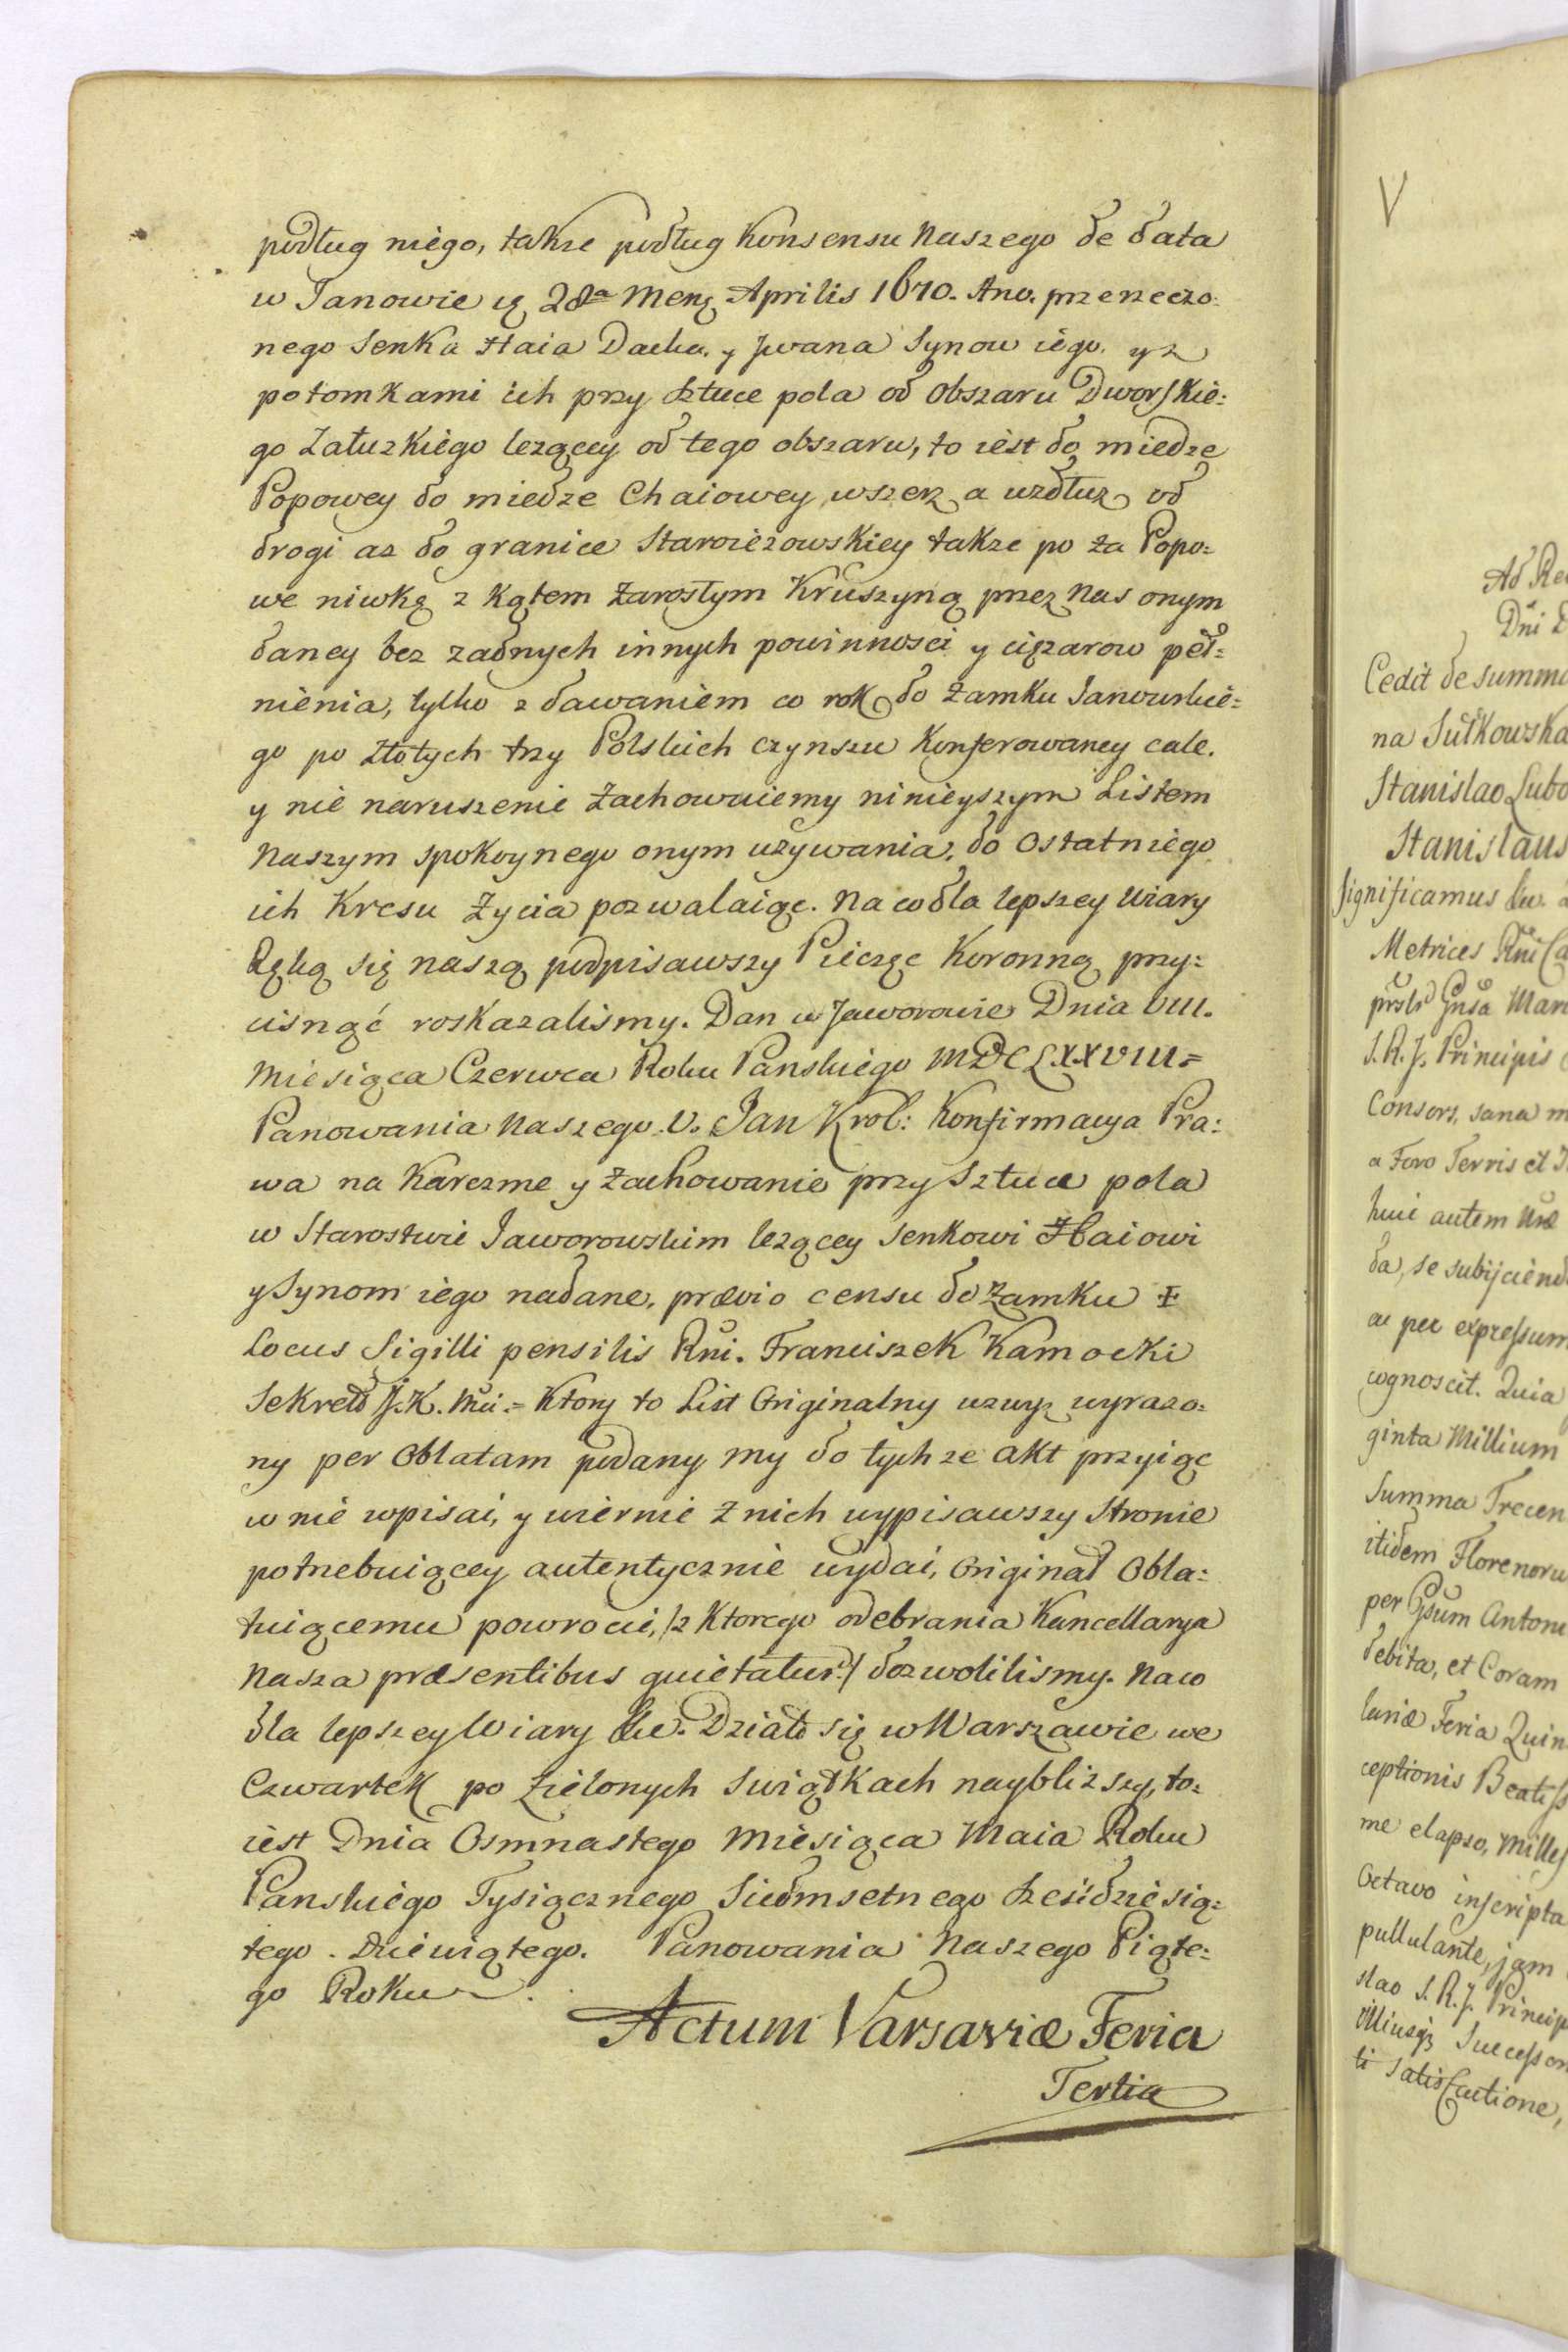 podług niego, takze podług Konsensu Naszego de data
w Janowie 28ª Mens Aprilis 1670. Ano. przerzeczo:
nego Senka Haia Dacka, y Jwana Synow iego. y z
potomkami ich przy sztuce pola od Obszaru Dworskie:
go Załuzkiego lezącey od tego obszaru, to iest do miedze
Popowey do miedze Chaiowey wszerz a wzdłuz od
drogi az do granice Starzieżowskiey takze po za Popo:
we niwkę z Kątem zarosłym Kruszyną przez Nas onym
daney bez zadnych innych powinnosci y ciężarow peł:
nienia, tylko z dawaniem co rok do Zamku Janowskie:
go po złotych trzy Polskich czynszu Konferowaney cale.
y nie naruszenie zachowuiemy ninieyszym Listem
Naszym spokoynego onym używania, do Ostatniego
ich Kresu Życia pozwalaiąc. Na co dla lepszey Wiary
Ręką się naszą podpisawszy Pieczęc Koronną przy:
cisnąć roskazalismy. Dan w Jaworowie Dnia VIII.
Miesiąca Czerwca Roku Panskiego MDCLXXVIII=
Panowania Naszego V. Jan Krol: Konfirmacya Pra:
wa na Karczme y zachowanie przy Sztuce pola
w Starostwie Jaworowskim lezącey Senkowi Haiowi
y Synom iego nadane, prævio censu do Zamku
Locus Sigilli pensilis Rni. Franciszek Kamocki
Sekret J. K. Mci.= Ktory to List Originalny wzwyz wyrazo:
ny per Oblatam podany my do tychze Akt przyiąc
w nie wpisai, y wiernie z nich wypisawszy Stronie
potrzebuiącey autentycznie wydai, Originał Obla:
tuiącemu powrocić, /z Ktorego odebrania Kancellarya
Nasza præsentibus quietatur:/ dozwolilismy. Na co
dla lepszey Wiary &c. Działo się w Warszawie we
Czwartek po Zielonych Swiątkach naybliższy, to:
iest Dnia Osmnastego Miesiąca Maia Roku
Panskiego Tysiącznego Siedmsetnego Szesćdziesią:
tego. Dziewiątego. Panowania Naszego Piąte:
go Roku.
Actum Varsaviæ Feria
Tertia
V
Ad Re
Dni
Cedit de summa
na Sułkowska
Stanislao Lubo
Stanislaus
Significamus &c.
Metrices Rni Ca
Mari
S. R. J. Principis
Consors, sana m
a Foro Terris et
huic autem
da, se subijciend
ac per expressum
cognoscit. Quia
ginta Millium
Summa Trecen
itidem Florenoru
per Antoni
debita, et Coram
lariæ Feria Quin
ceptionis Beatiss
me elapso, Milles
Octavo inscripta
pullulante, jam
slao S. R. J. Princip
illiusq3 Successor
ti Satisfactione,